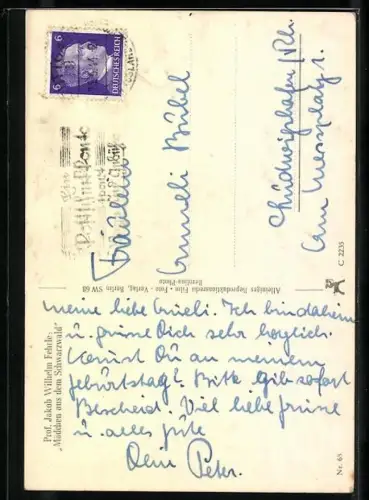 6 DEUTSCHES REICH 6
Ein
Postscheckkonto
spart
Fräulein
Anneli Bübel
Ludwigshafen /Rh.
Am Messplatz 1.
Alleiniges Reproduktionsrecht Film-Foto-Verlag, Berlin SW 68
C 2235
Prof. Jakob Wilhelm Fehrle:
„Mädchen aus dem Schwarzwald“
Nr. 65
Meine liebe Anneli. Ich bin daheim
u. grüsse Dich sehr herzlich.
Kannst Du an meinem
Geburtstag? Bitte gib sofort
Bescheid. Viel liebe Grüsse
u. alles Gute
Dein Peter.